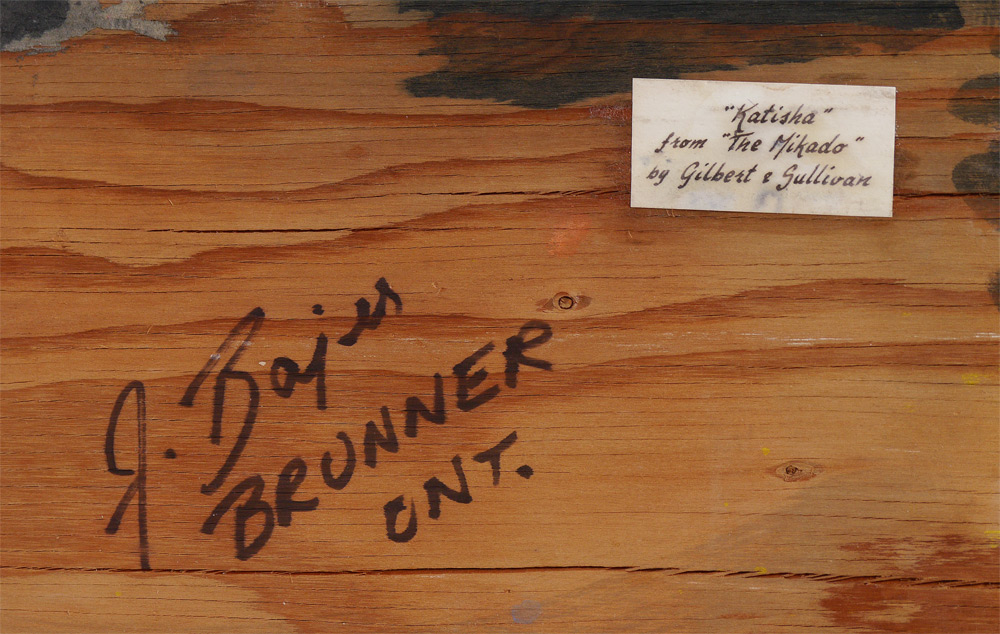 "Katisha"
from "The Mikado"
by Gilbert & Sullivan
J. Bajus
BRUNNER
ONT.